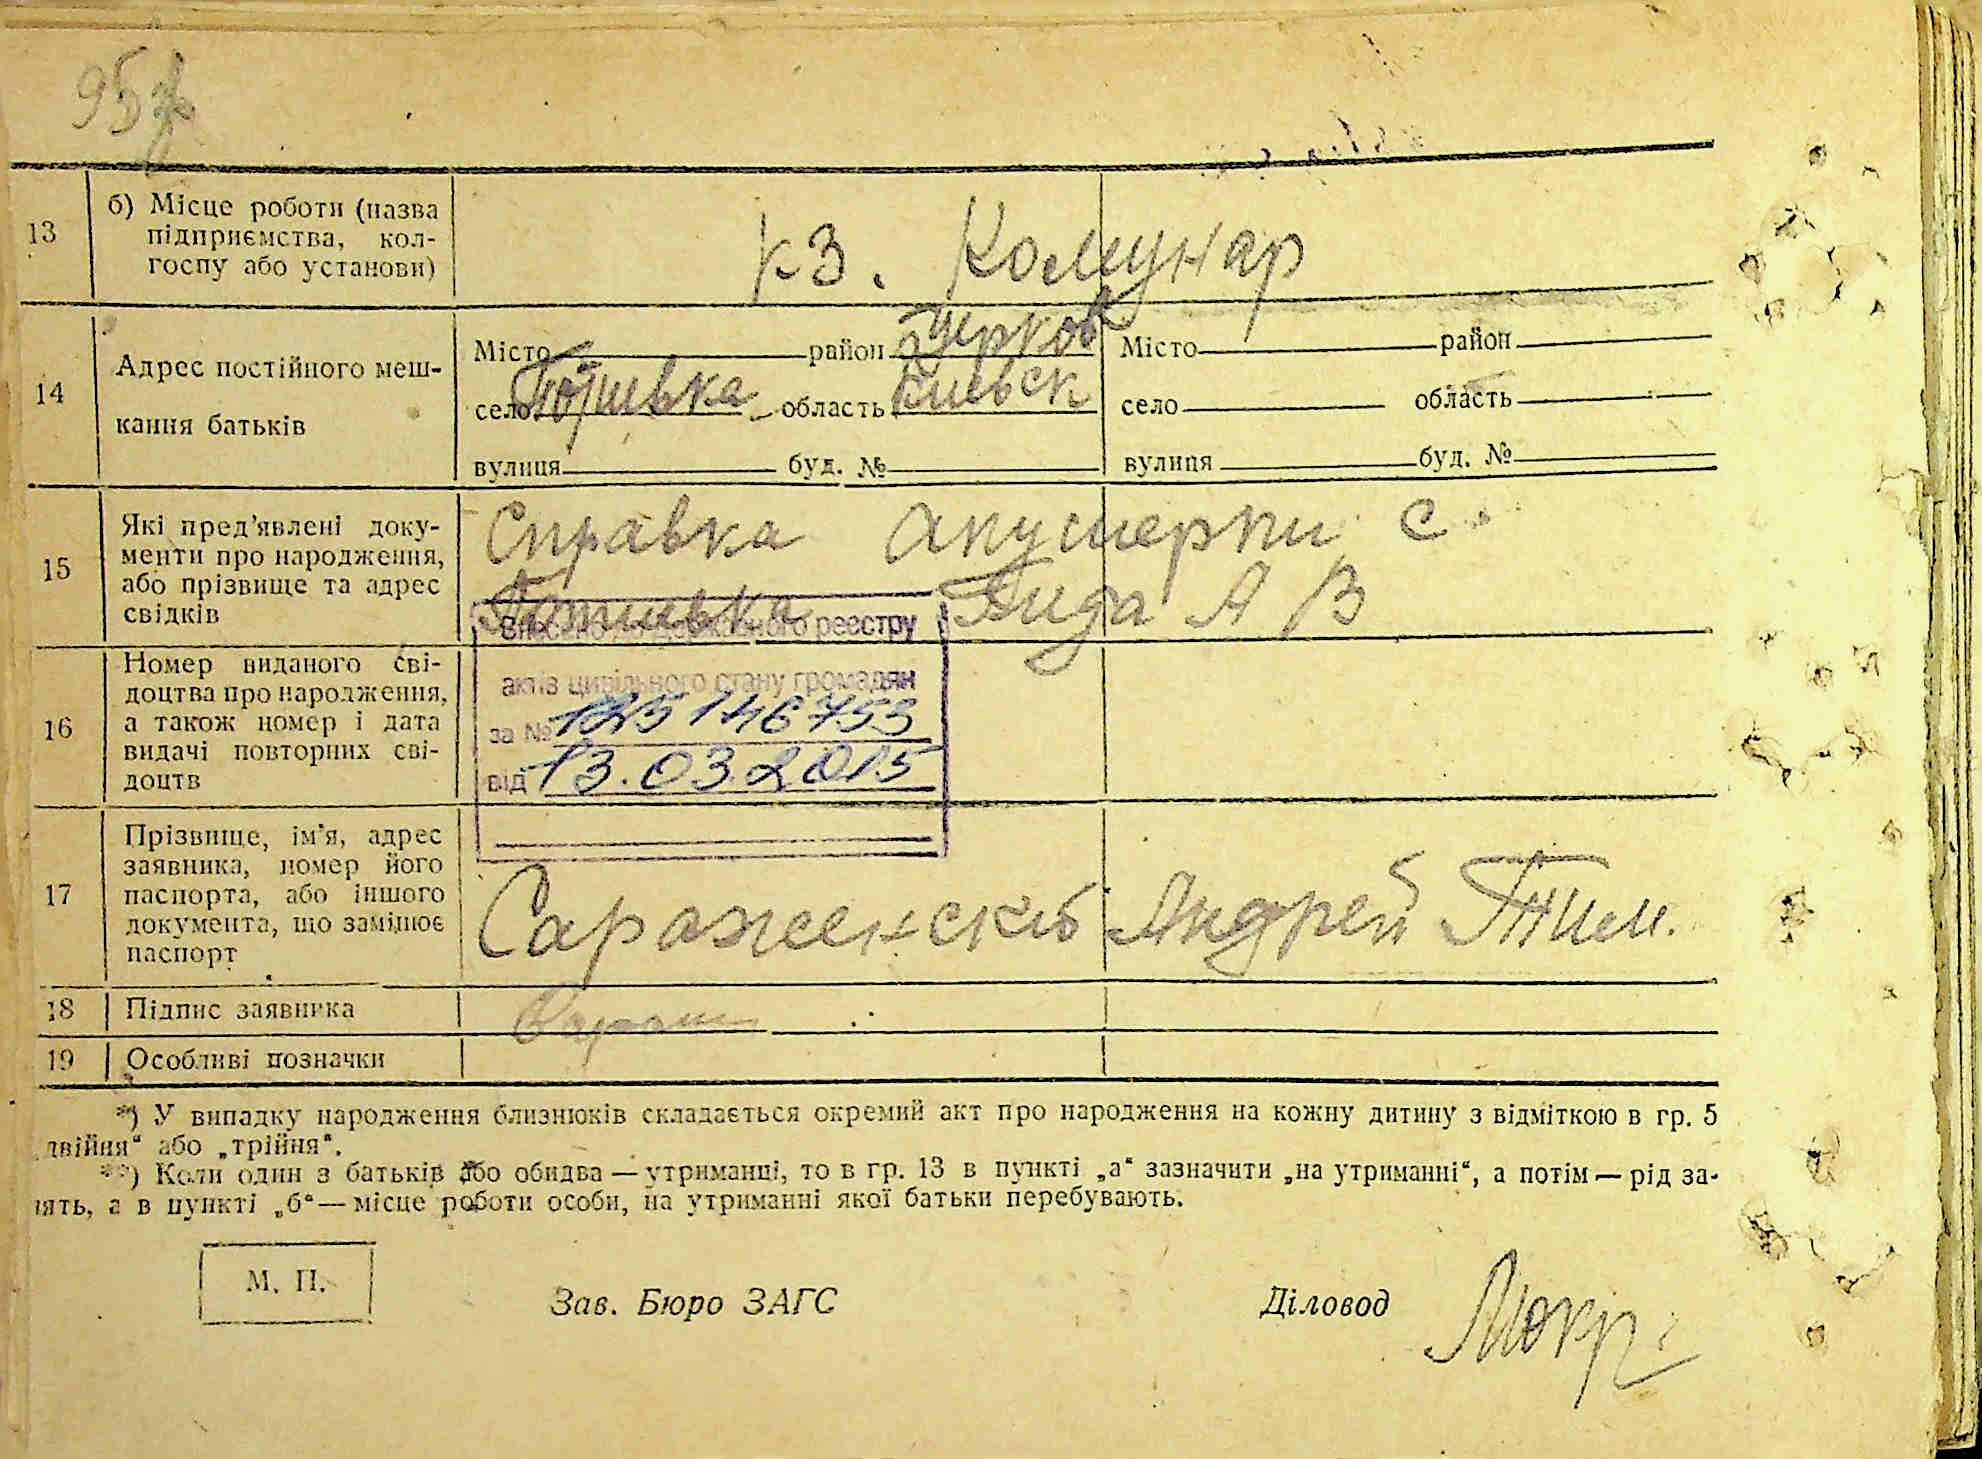 95
13 б) Місце роботи (назва підприємства, кол-госпу або установи)
кз. Комунар
14 Адрес постійного меш-кання батьків
Місто район
село область Киевск
вулиця буд. №
Місто район
село область
вулиця буд. №
15 Які пред’явлені доку-менти про народження, або прізвище та адрес свідків
Справка акушерки с.
А В
16 Номер виданого сві-доцтва про народження, а також номер і дата видачі повторних сві-доцтв
Внесено до Державного реєстру
актів цивільного стану громадян
за № 125146753
від 13.03.2015
17 Прізвище, ім’я, адрес заявника, номер його паспорта, або іншого документа, що замінює паспорт
Андрей Тим.
18 Підпис заявника
19 Особливі позначки
*) У випадку народження близнюків складається окремий акт про народження на кожну дитину з відміткою в гр. 5
двійня“ або „трійня“.
**) Коли один з батьків або обидва — утриманці, то в гр. 13 в пункті „а“ зазначити „на утриманні“, а потім — рід за-
нять, а в пункті „б“ — місце роботи особи, на утриманні якої батьки перебувають.
М. П.
Зав. Бюро ЗАГС
Діловод